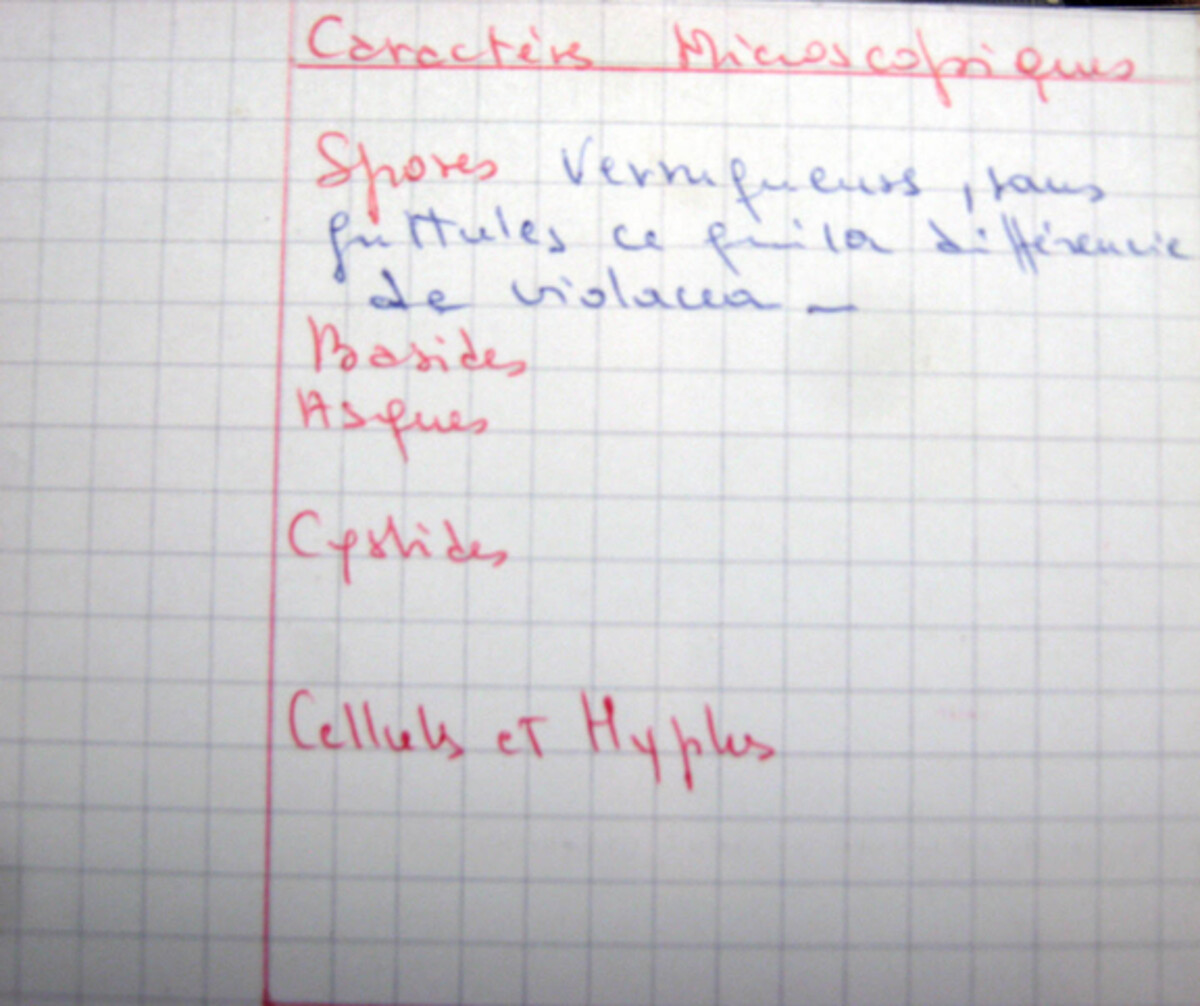 Caractères Microscopiques
Spores Verruqueuses, sans
guttules ce qui la différencie
de violacea -
Basides
Asques
Cystides
Cellules et Hyphes